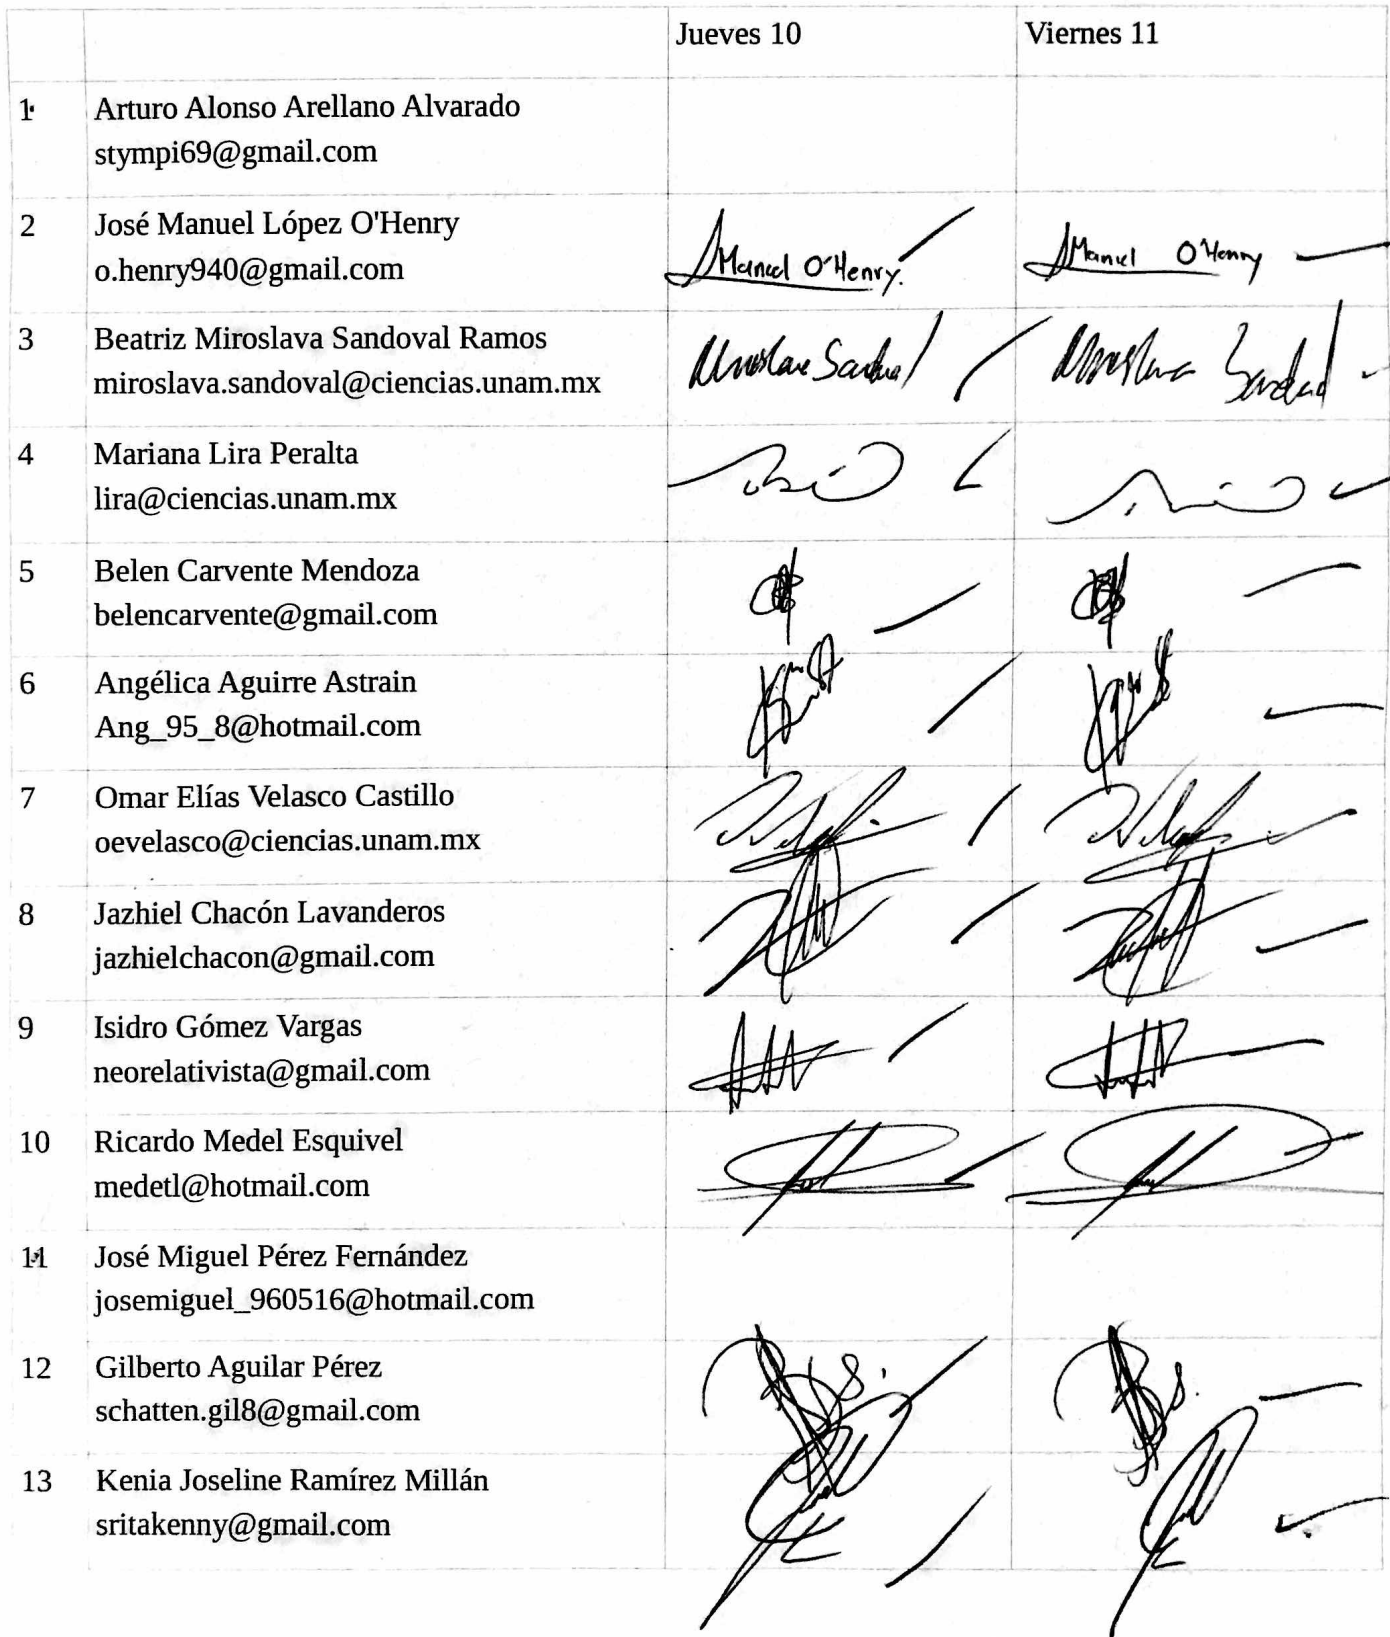 Jueves 10 Viernes 11
1 Arturo Alonso Arellano Alvarado
stympi69@gmail.com
2 José Manuel López O'Henry
o.henry940@gmail.com
Manuel O'Henry. Manuel O'Henry
3 Beatriz Miroslava Sandoval Ramos
miroslava.sandoval@ciencias.unam.mx
Miroslava Sandoval Miroslava Sandoval
4 Mariana Lira Peralta
lira@ciencias.unam.mx
5 Belen Carvente Mendoza
belencarvente@gmail.com
6 Angélica Aguirre Astrain
Ang_95_8@hotmail.com
7 Omar Elías Velasco Castillo
oevelasco@ciencias.unam.mx
8 Jazhiel Chacón Lavanderos
jazhielchacon@gmail.com
9 Isidro Gómez Vargas
neorelativista@gmail.com
10 Ricardo Medel Esquivel
medetl@hotmail.com
11 José Miguel Pérez Fernández
josemiguel_960516@hotmail.com
12 Gilberto Aguilar Pérez
schatten.gil8@gmail.com
13 Kenia Joseline Ramírez Millán
sritakenny@gmail.com